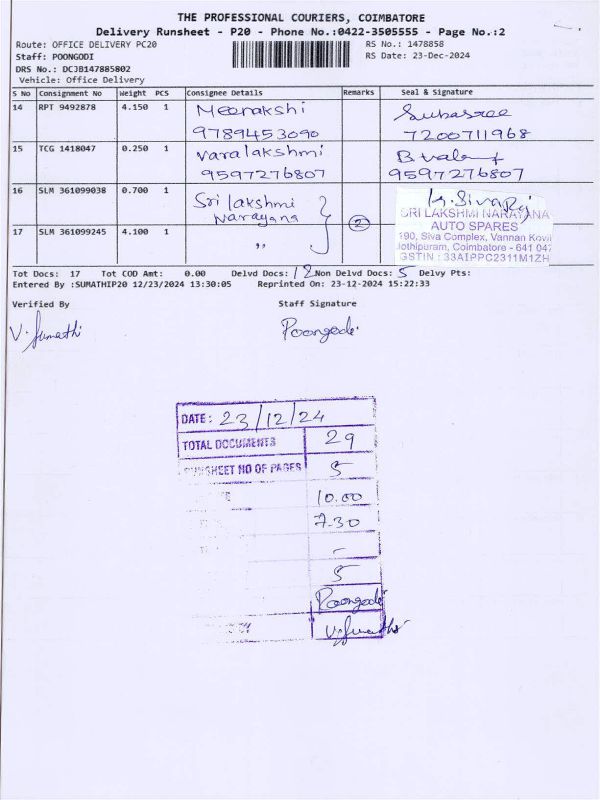 THE PROFESSIONAL COURIERS, COIMBATORE
Delivery Runsheet - P20 - Phone No.:0422-3505555 - Page No.:2
Route: OFFICE DELIVERY PC20 RS No.: 1478858
Staff: POONGODI RS Date: 23-Dec-2024
DRS No.: DCJB147885802
Vehicle: Office Delivery
S No Consignment No Weight PCS Consignee Details Remarks Seal & Signature
14 RPT 9492878 4.150 1 Meenakshi Subasree
9789453090 7200711968
15 TCG 1418047 0.250 1 Varalakshmi
9597276807 9597276807
16 SLM 361099038 0.700 1 Sri lakshmi
Narayana 2
SRI LAKSHMI NARAYANA
AUTO SPARES
190, Siva Complex, Vannan Kovil
Jothipuram, Coimbatore - 641 047
GSTIN : 33AIPPC2311M1ZH
17 SLM 361099245 4.100 1 ,,
Tot Docs: 17 Tot COD Amt: 0.00 Delvd Docs: 12 Non Delvd Docs: 5 Delvy Pts:
Entered By :SUMATHIP20 12/23/2024 13:30:05 Reprinted On: 23-12-2024 15:22:33
Verified By Staff Signature
V. Sumathi Poongodi
DATE: 23/12/24
TOTAL DOCUMENTS 29
RUNSHEET NO OF PAGES 5
10.00
7.30
-
5
Poongodi
V. Sumathi